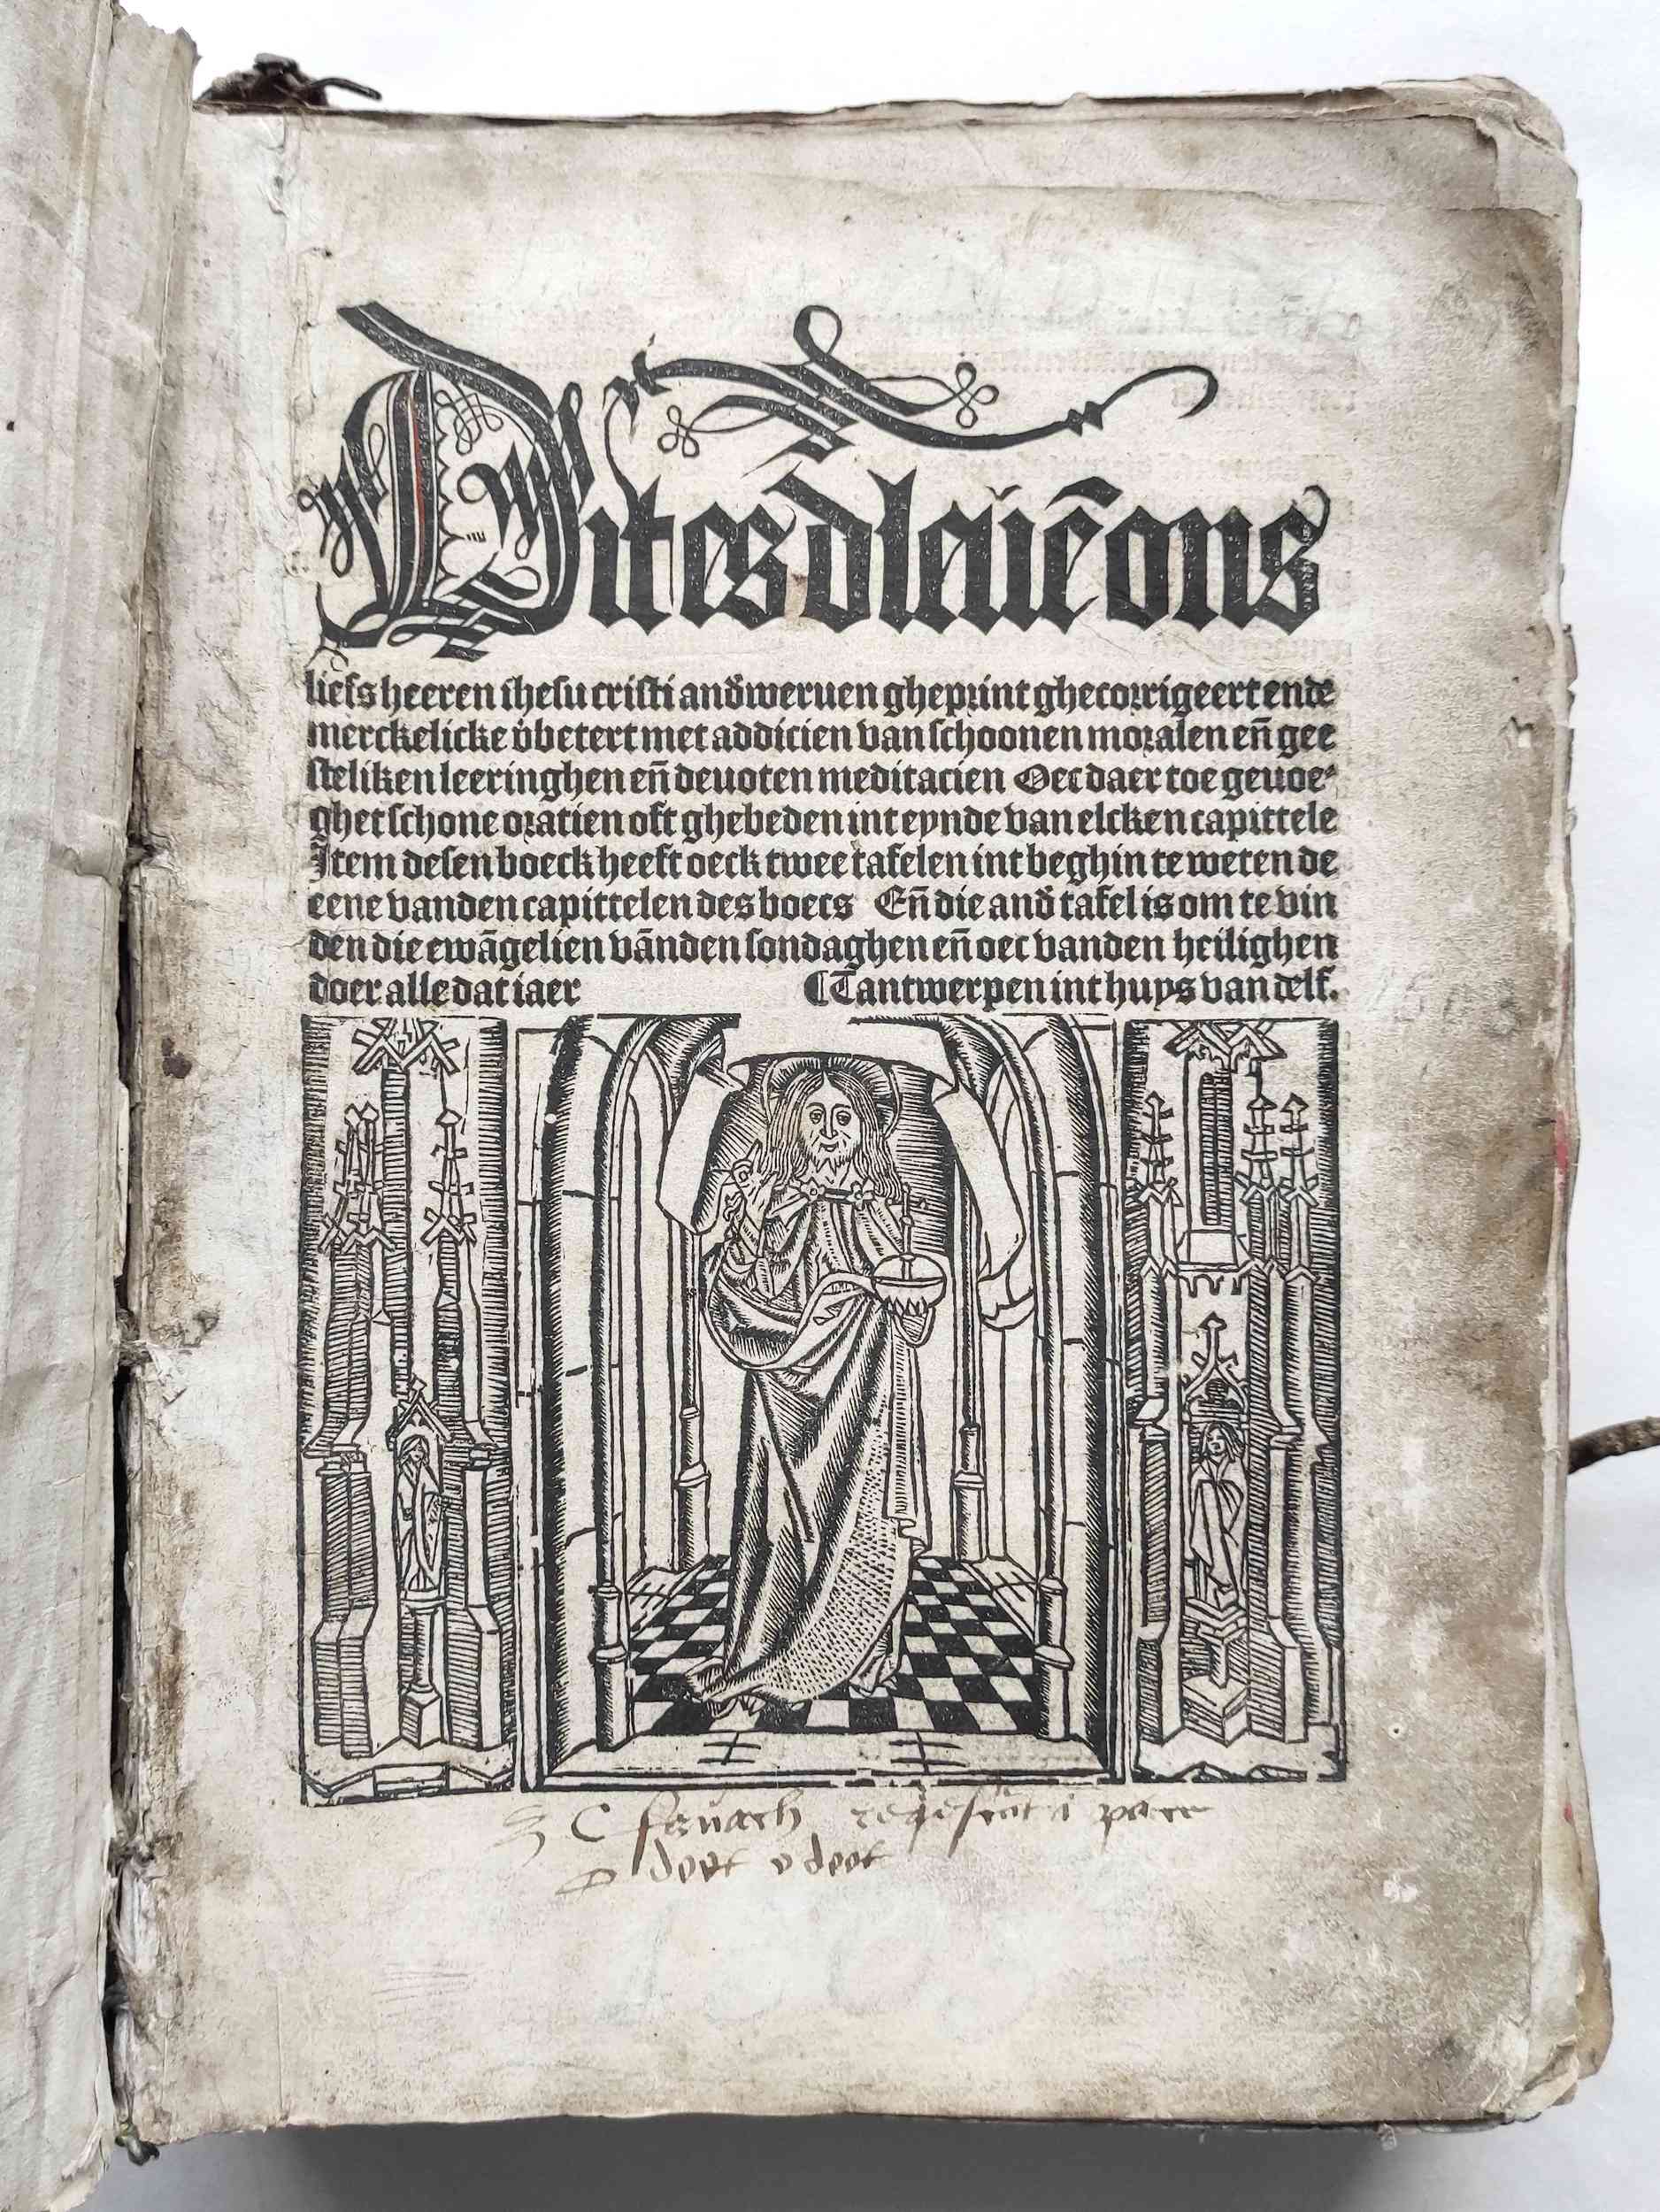 Dit es dleuē ons
liefs heeren ihesu cristi anďweruen gheprint ghecorrigeert ende
merckelicke v̇betert met addicien van schoonen moralen eñ gee
steliken leeringhen eñ deuoten meditacien Oec daer toe geuoe⸗
ghet schone oratien oft ghebeden int eynde van elcken capittele
Item desen boeck heeft oeck twee tafelen int beghin te weten de
eene vanden capittelen des boecs Eñ die anď tafel is om te vin
den die ewāgelien vānden sondaghen eñ oec vanden heilighen
doer alle dat iaer ¶ Tantwerpen int huys van delf.